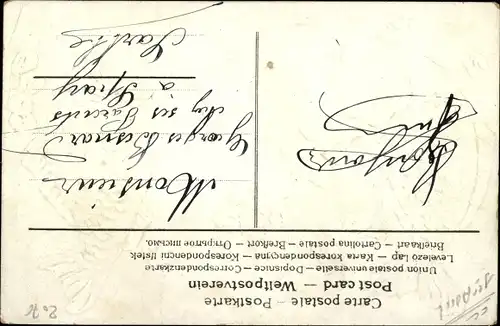 Carte postale – Postkarte
Post card – Weltpostverein
Union postale universelle – Dopisnice – Correspondenzkarte
Levelező Lap – Karta korespondencyjna – Korespondencni listek
Briefkaart – Cartolina postale – Brefkort – Открытое письмо.
Monsieur
Georges Besnard
chez ses Parents
à Spay
Sarthe
Bonjour